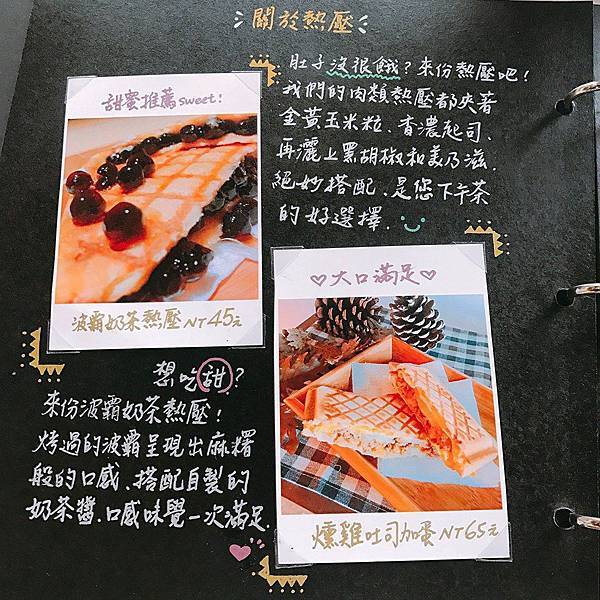 關於熱壓
肚子沒很餓?來份熱壓吧!
我們的肉類熱壓都夾著
金黃玉米粒、香濃起司、
再灑上黑胡椒和美乃滋,
絕妙搭配,是您下午茶
的好選擇.
甜蜜推薦sweet!
波霸奶茶熱壓NT45元
大口滿足
燻雞吐司加蛋NT65元
想吃甜?
來份波霸奶茶熱壓!
烤過的波霸呈現出麻糬
般的口感、搭配自製的
奶茶醬.口感味覺一次滿足.